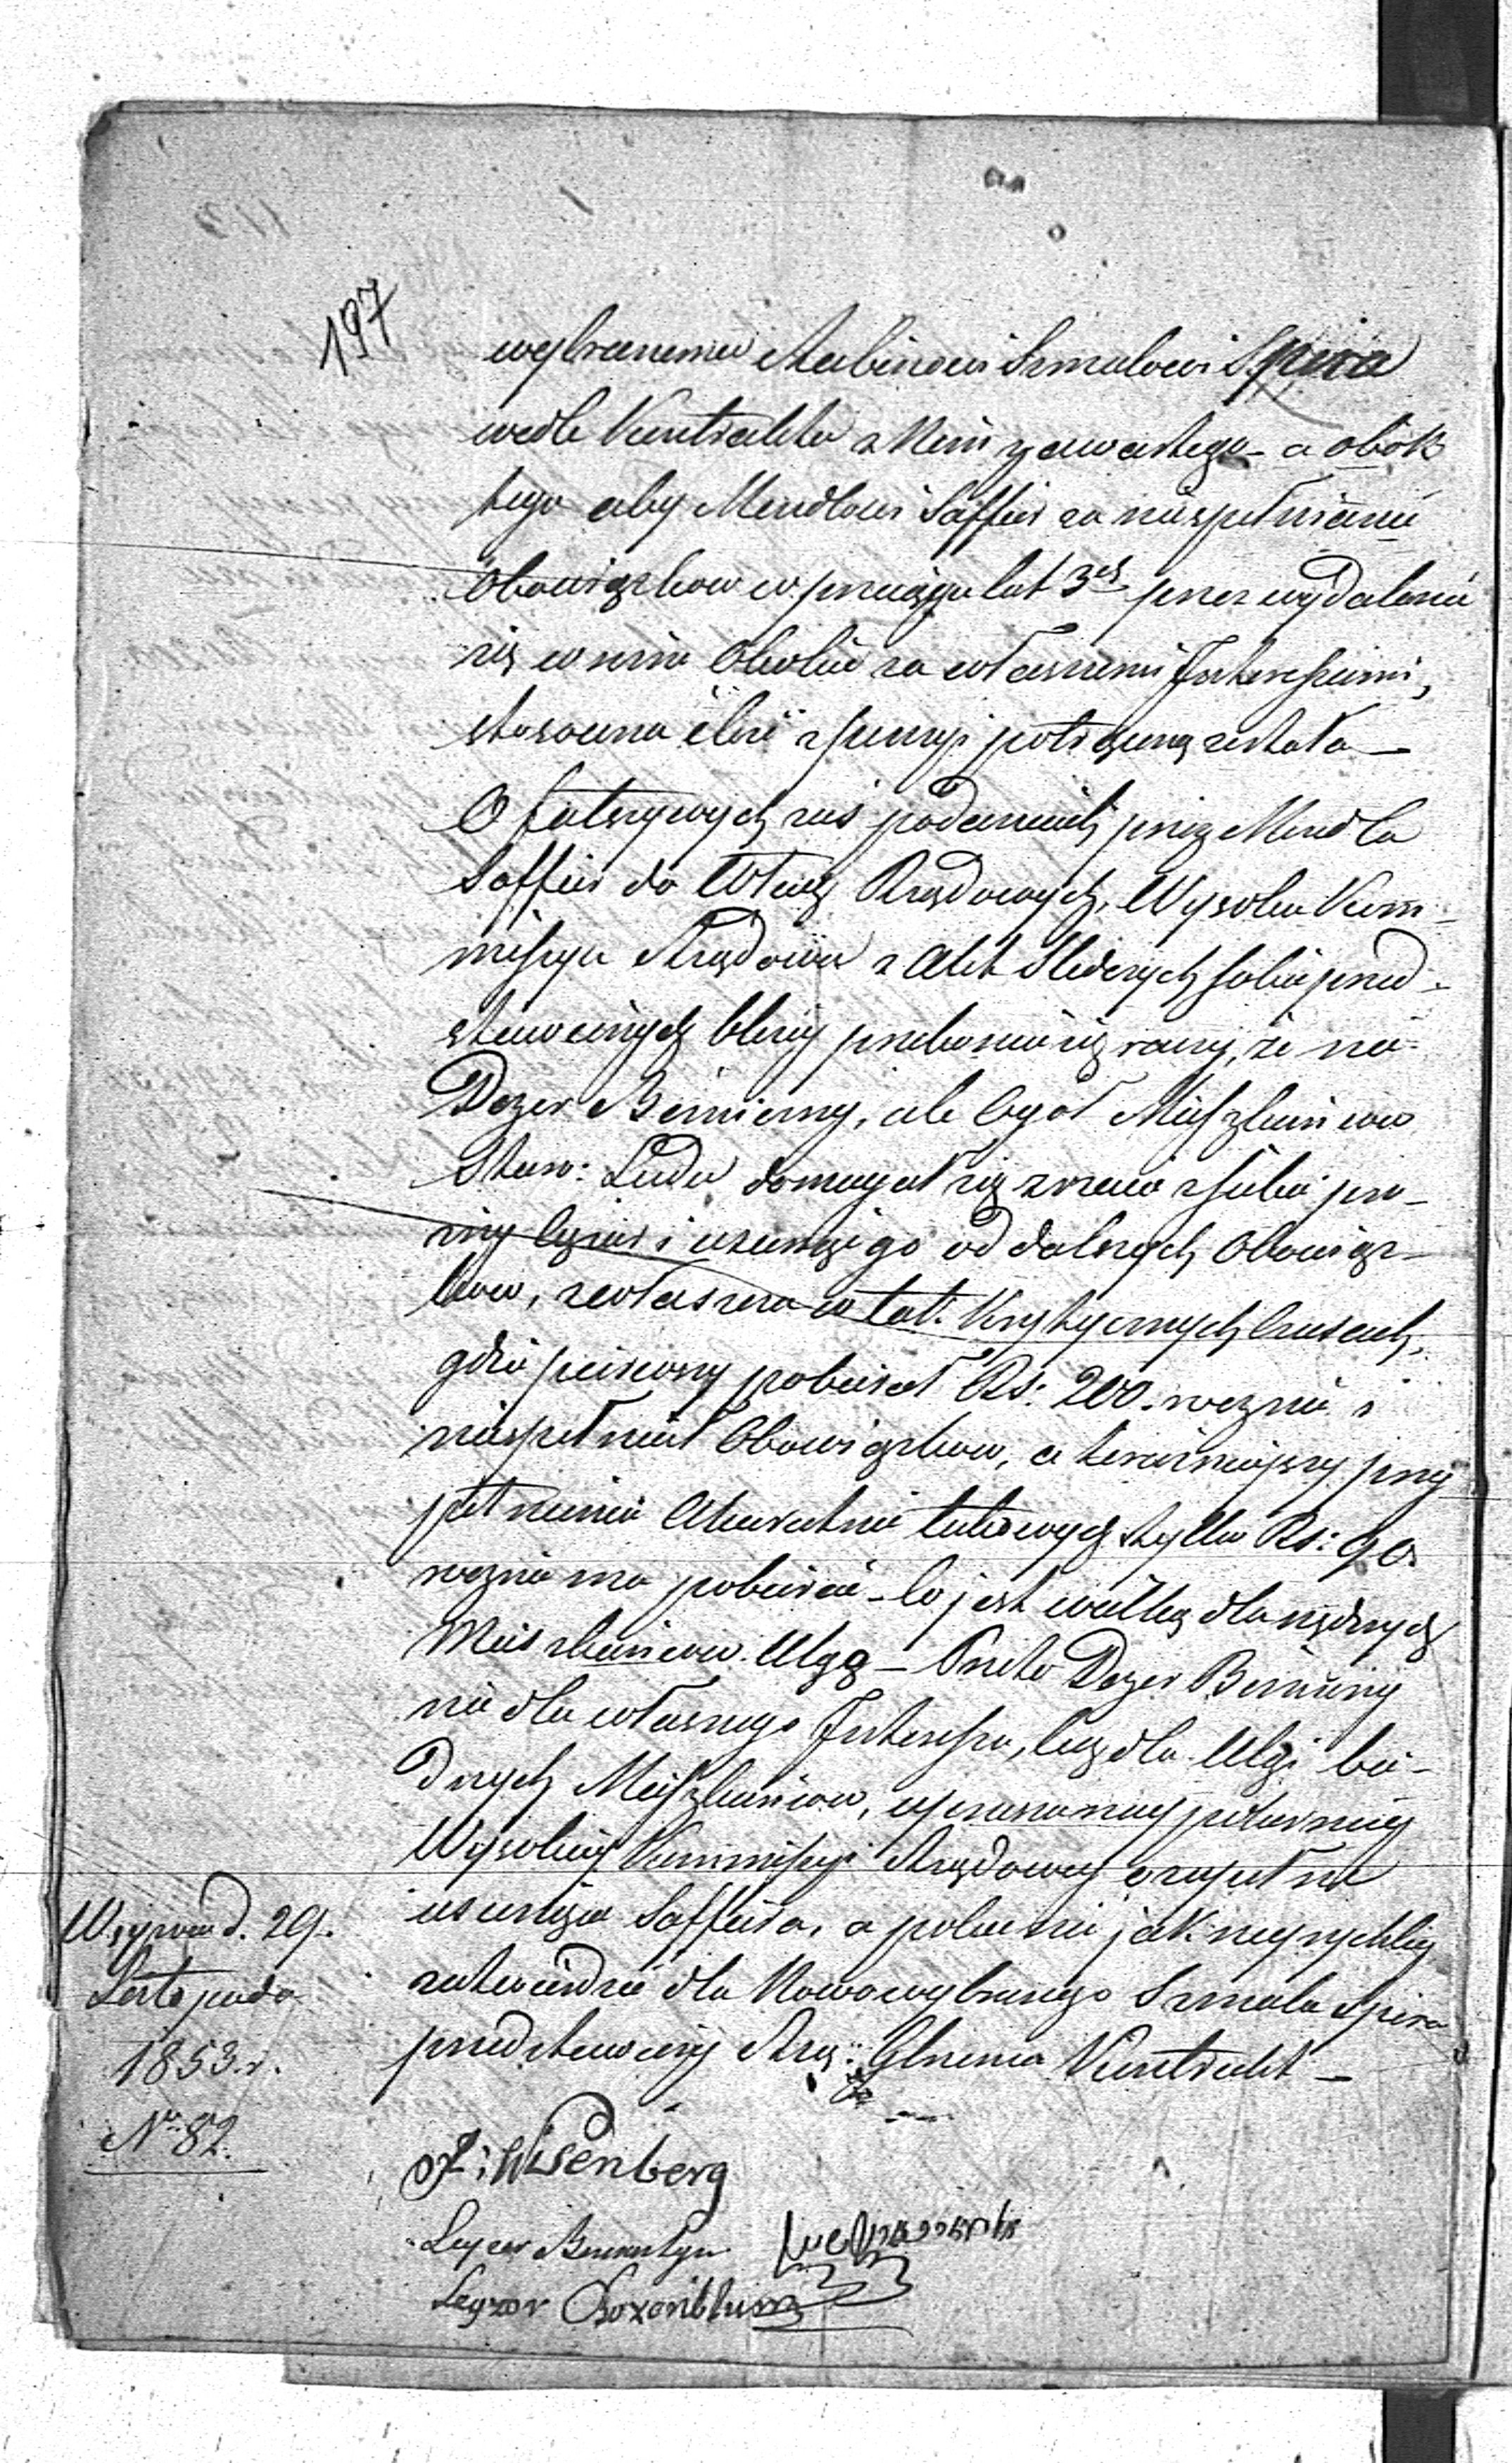 197
wybranemu Rabinowi Szmulowi Spira
wedle Kontraktu z Nim zawartego - a obok
tego aby Mendlowi Saffir za niespełnianie
Obowiązkow w przeciągu lat 3ch przez wydalenie
się w inne Okolice za własnemi Interessami,
stosowna ilość z pensyi potrąconą została —
O fałszywych zaś podaniach przez Mendla
Saffir do Władz Rządowych, Wysoka Kom-
missya Rządowa z Akt Śledczych sobie przed-
stawionych bliżej przekonać się raczy, że nie
Dozor Bożniczny, ale Ogół Mieszkańcow
Staro: Ludu domagał się zrzucić z siebie
i usunąć go od dalszych Obowiąz-
kow, zwłaszcza w tak Krytycznych Czasach,
gdzie pierwszy pobierał Rs: 200. rocznie i
niespełniał Obowiązkow, a teraźniejszy przy
pełnieniu Akuratnie takowych tylko Rs: 90.
rocznie ma pobierać - Co jest wielką dla nędznych
Mieszkańcow Ulgą — Przeto Dozor Bożniczny
nie dla własnego Interessu, lecz dla Ulgi bie-
dnych Mieszkańcow, uprasza
Wysokiej Kommissyi Rządowej o zupełne
usunięcie Saffira, a polecenie jak nayrychley
zatwierdzić dla Nowowybranego Szmula Spira
przedstawiony Kontrakt —
Wyprawd. 29.
Listopada
1853. r.
No 82.
Wisenberg
Leyzor
Leyzor Rozenblum